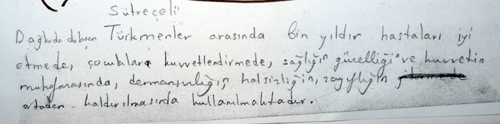 Sütreçeli
Dağlarda dolaşan Türkmenler arasında bin yıldır hastaları iyi
etmede, çocukları kuvvetlendirmede, sağlığın güzelliği ve kuvvetin
muhafazasında, dermansızlığın, halsizliğin, zayıflığın
ortadan kaldırılmasında kullanılmaktadır.